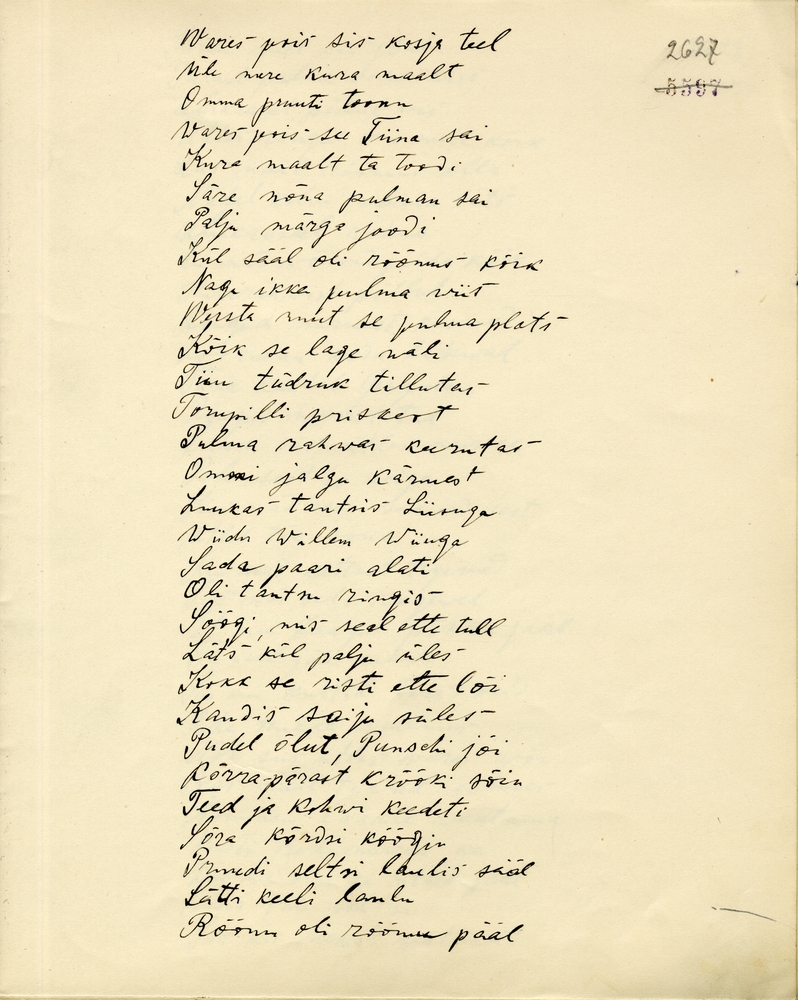 Wares pois sis kosja teel
Üle mere kura maalt
Omma pruuti toonu
Wares pois see Tiina sai
Kura maalt ta toodi
Säre nõna pulman sai
Palju märga joodi
Kül sääl oli rõõmus kõik
Nagu ikka pulma wiit
Wersta muut se pulma plats
Kõik se lage wäli
Tiiu tüdruk tillutas
Torupilli priskest
Pulma rahwas keerutas
Ommi jalgu kärmest
Luukas tantsis Liisuga
Wiidu Willem Wiiuga
Sada paari alati
Oli tantsu ringis
Söögi, mis seal ette tull
Läts kül palju üles
Kokk se risti ette lõi
Kandis saiju süles
Pudel õlut, Punschi jõi
Kõrra-pärast krõõki sõiu
Teed ja kohwi keedeti
Sõra kõrdsi köögin
Pruudi seltsi laulis sääl
Lätti keeli laulu
Rõõmu oli rõõmu pääl
2627
5597